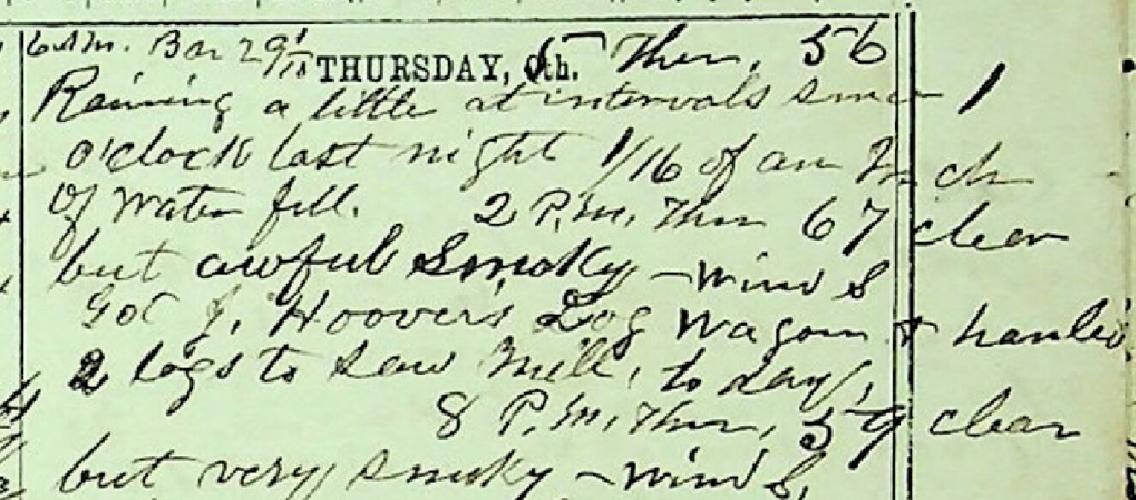 6 A.M. Bar 29 1/10 THURSDAY, 5th. Ther. 56
Raining a little at intervals since 1
o'clock last night 1/16 of an Inch
of Water fell. 2 P.M. Ther 67 clear
but awful Smoky - wind S
Got J. Hoover's Log Wagon & hauled
2 logs to Saw Mill, to day,
8 P.M. Ther, 59 clear
but very smoky - wind S.